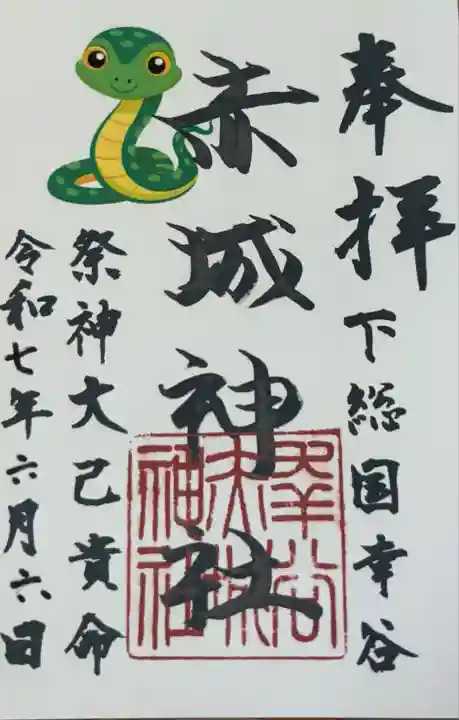 奉拝
下総国幸谷
赤城神社
幸谷
赤城
神社
祭神大己貴命
令和七年六月六日